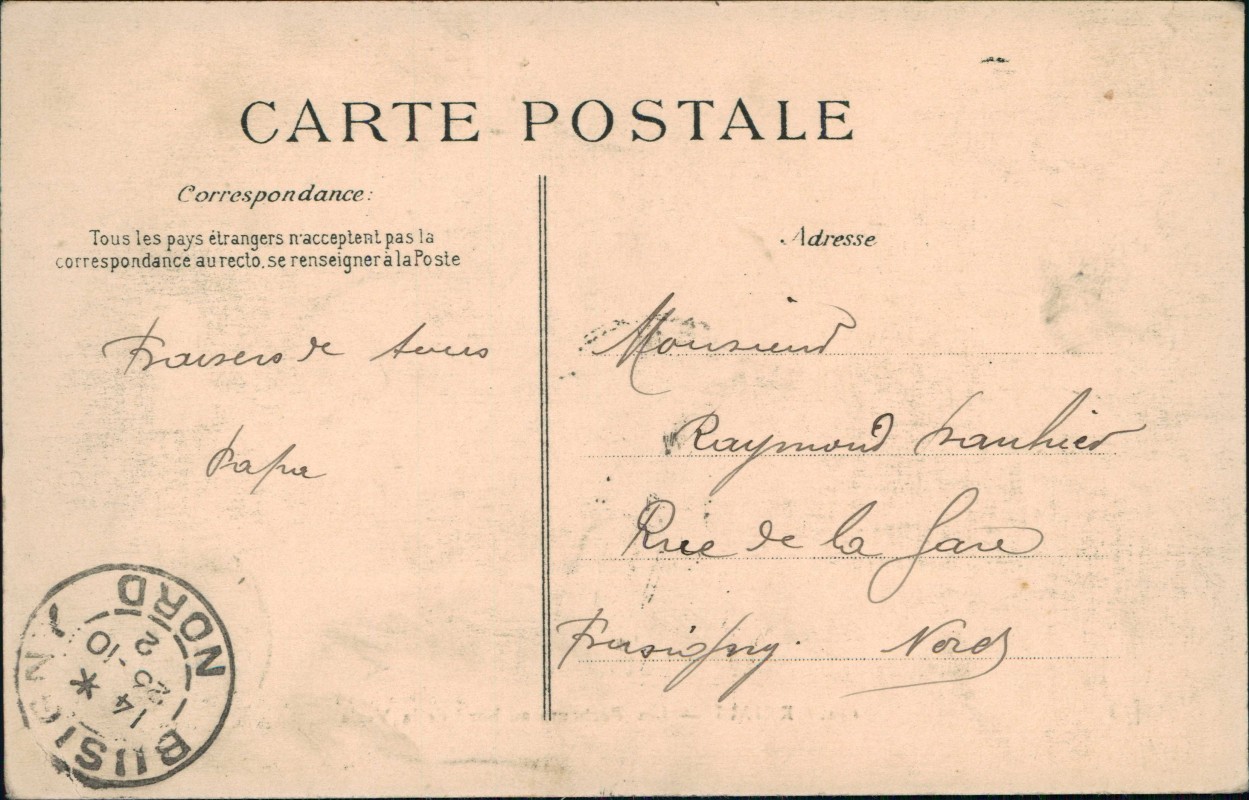 CARTE POSTALE
Correspondance:
Tous les pays étrangers n'acceptent pas la
correspondance au recto, se renseigner à la Poste
Adresse
Baisers de tous
Papa
Monsieur
Raymond
Rue de la Gare
Busigny. Nord
BUSIGNY
NORD
14 *
25
2 -10